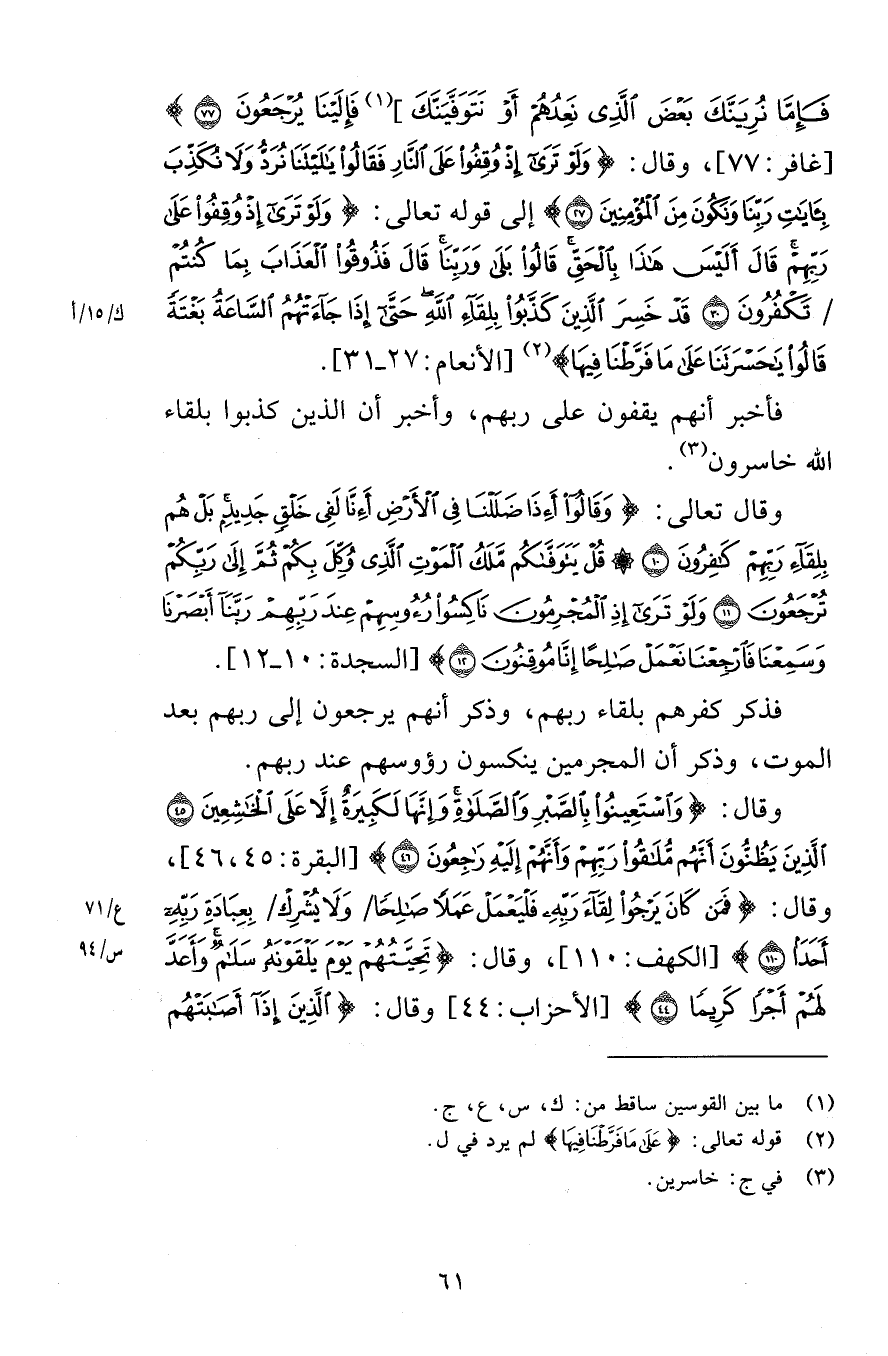 فَإِمَّا نُرِيَنَّكَ بَعْضَ ٱلَّذِى نَعِدُهُمْ أَوْ نَتَوَفَّيَنَّكَ ](١) فَإِلَيْنَا يُرْجَعُونَ ٧٧ ﴾
[غافر: ٧٧]، وقال: ﴿ وَلَوْ تَرَىٰٓ إِذْ وُقِفُوا۟ عَلَى ٱلنَّارِ فَقَالُوا۟ يَٰلَيْتَنَا نُرَدُّ وَلَا نُكَذِّبَ
بِـَٔايَٰتِ رَبِّنَا وَنَكُونَ مِنَ ٱلْمُؤْمِنِينَ ٢٧ ﴾ إلى قوله تعالى: ﴿ وَلَوْ تَرَىٰٓ إِذْ وُقِفُوا۟ عَلَىٰ
رَبِّهِمْ ۚ قَالَ أَلَيْسَ هَٰذَا بِٱلْحَقِّ ۚ قَالُوا۟ بَلَىٰ وَرَبِّنَا ۚ قَالَ فَذُوقُوا۟ ٱلْعَذَابَ بِمَا كُنتُمْ
/ تَكْفُرُونَ ٣٠ قَدْ خَسِرَ ٱلَّذِينَ كَذَّبُوا۟ بِلِقَآءِ ٱللَّهِ ۖ حَتَّىٰٓ إِذَا جَآءَتْهُمُ ٱلسَّاعَةُ بَغْتَةً
ك/١٥/أ
قَالُوا۟ يَٰحَسْرَتَنَا عَلَىٰ مَا فَرَّطْنَا فِيهَا ﴾(٢) [الأنعام: ٢٧ـ٣١].
فأخبر أنهم يقفون على ربهم، وأخبر أن الذين كذبوا بلقاء
الله خاسرون(٣).
وقال تعالى: ﴿ وَقَالُوٓا۟ أَءِذَا ضَلَلْنَا فِى ٱلْأَرْضِ أَءِنَّا لَفِى خَلْقٍ جَدِيدٍۭ ۚ بَلْ هُم
بِلِقَآءِ رَبِّهِمْ كَٰفِرُونَ ١٠ ۞ قُلْ يَتَوَفَّىٰكُم مَّلَكُ ٱلْمَوْتِ ٱلَّذِى وُكِّلَ بِكُمْ ثُمَّ إِلَىٰ رَبِّكُمْ
تُرْجَعُونَ ١١ وَلَوْ تَرَىٰٓ إِذِ ٱلْمُجْرِمُونَ نَاكِسُوا۟ رُءُوسِهِمْ عِندَ رَبِّهِمْ رَبَّنَآ أَبْصَرْنَا
وَسَمِعْنَا فَٱرْجِعْنَا نَعْمَلْ صَٰلِحًا إِنَّا مُوقِنُونَ ١٢ ﴾ [السجدة: ١٠ـ١٢].
فذكر كفرهم بلقاء ربهم، وذكر أنهم يرجعون إلى ربهم بعد
الموت، وذكر أن المجرمين ينكسون رؤوسهم عند ربهم.
وقال: ﴿ وَٱسْتَعِينُوا۟ بِٱلصَّبْرِ وَٱلصَّلَوٰةِ ۚ وَإِنَّهَا لَكَبِيرَةٌ إِلَّا عَلَى ٱلْخَٰشِعِينَ ٤٥
ٱلَّذِينَ يَظُنُّونَ أَنَّهُم مُّلَٰقُوا۟ رَبِّهِمْ وَأَنَّهُمْ إِلَيْهِ رَٰجِعُونَ ٤٦ ﴾ [البقرة: ٤٥، ٤٦]،
وقال: ﴿ فَمَن كَانَ يَرْجُوا۟ لِقَآءَ رَبِّهِۦ فَلْيَعْمَلْ عَمَلًا صَٰلِحًا/ وَلَا يُشْرِكْ/ بِعِبَادَةِ رَبِّهِۦٓ
ع/٧١
أَحَدًۢا ١١٠ ﴾ [الكهف: ١١٠]، وقال: ﴿ تَحِيَّتُهُمْ يَوْمَ يَلْقَوْنَهُۥ سَلَٰمٌ ۚ وَأَعَدَّ
س/٩٤
لَهُمْ أَجْرًا كَرِيمًا ٤٤ ﴾ [الأحزاب: ٤٤] وقال: ﴿ ٱلَّذِينَ إِذَآ أَصَٰبَتْهُم
(١) ما بين القوسين ساقط من: ك، س، ع، ج.
(٢) قوله تعالى: ﴿ عَلَىٰ مَا فَرَّطْنَا فِيهَا ﴾ لم يرد في ل.
(٣) في ج: خاسرين.
٦١